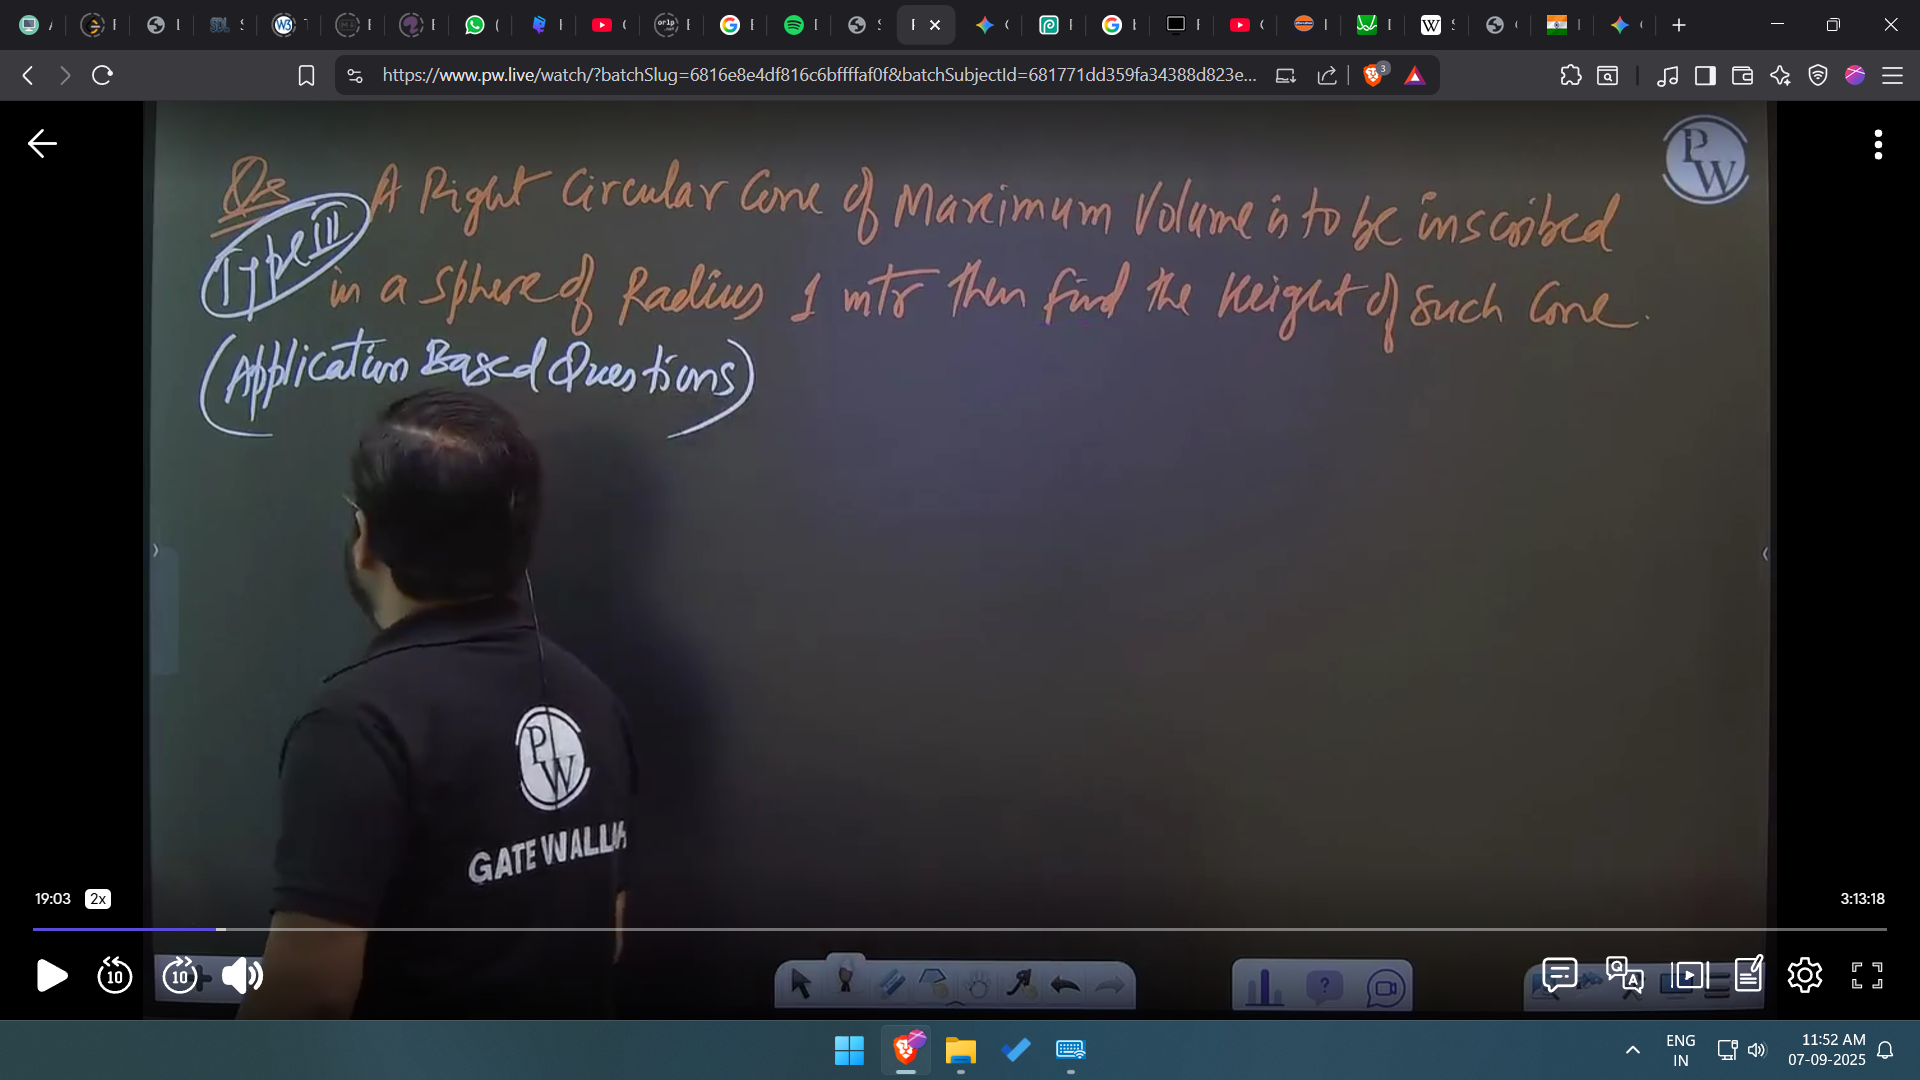 https://www.pw.live/watch/?batchSlug=6816e8e4df816c6bffffaf0f&batchSubjectId=681771dd359fa34388d823e...
3
PW
Qs A Right Circular Cone of Maximum Volume is to be inscribed
Type III
in a Sphere of Radius 1 mtr then find the Height of such Cone.
(Application Based Questions)
PW
GATE WALLAH
19:03 2x
3:13:18
10 10
ENG
IN
11:52 AM
07-09-2025